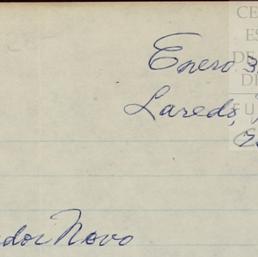 Enero 3
Laredo,
dor Novo
CE
ES
DE
DE